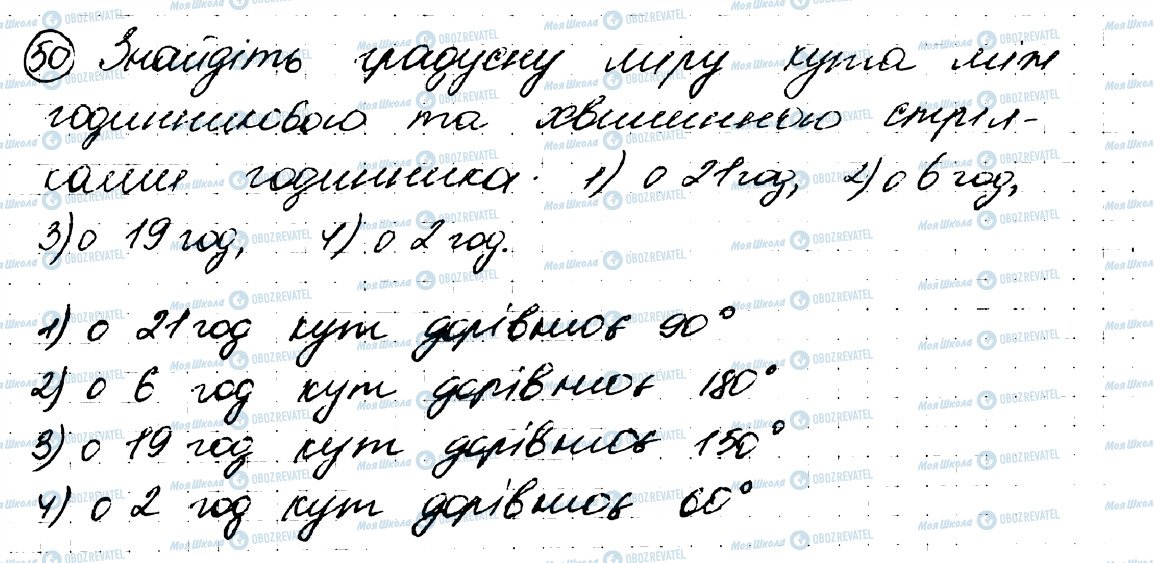 50 Знайдіть градусну міру кута між
годинниковою та хвилинною стріл-
ками годинника: 1) о 21 год, 2) о 6 год,
3) о 19 год, 4) о 2 год.
1) о 21 год кут дорівнює 90°
2) о 6 год кут дорівнює 180°
3) о 19 год кут дорівнює 150°
4) о 2 год кут дорівнює 60°